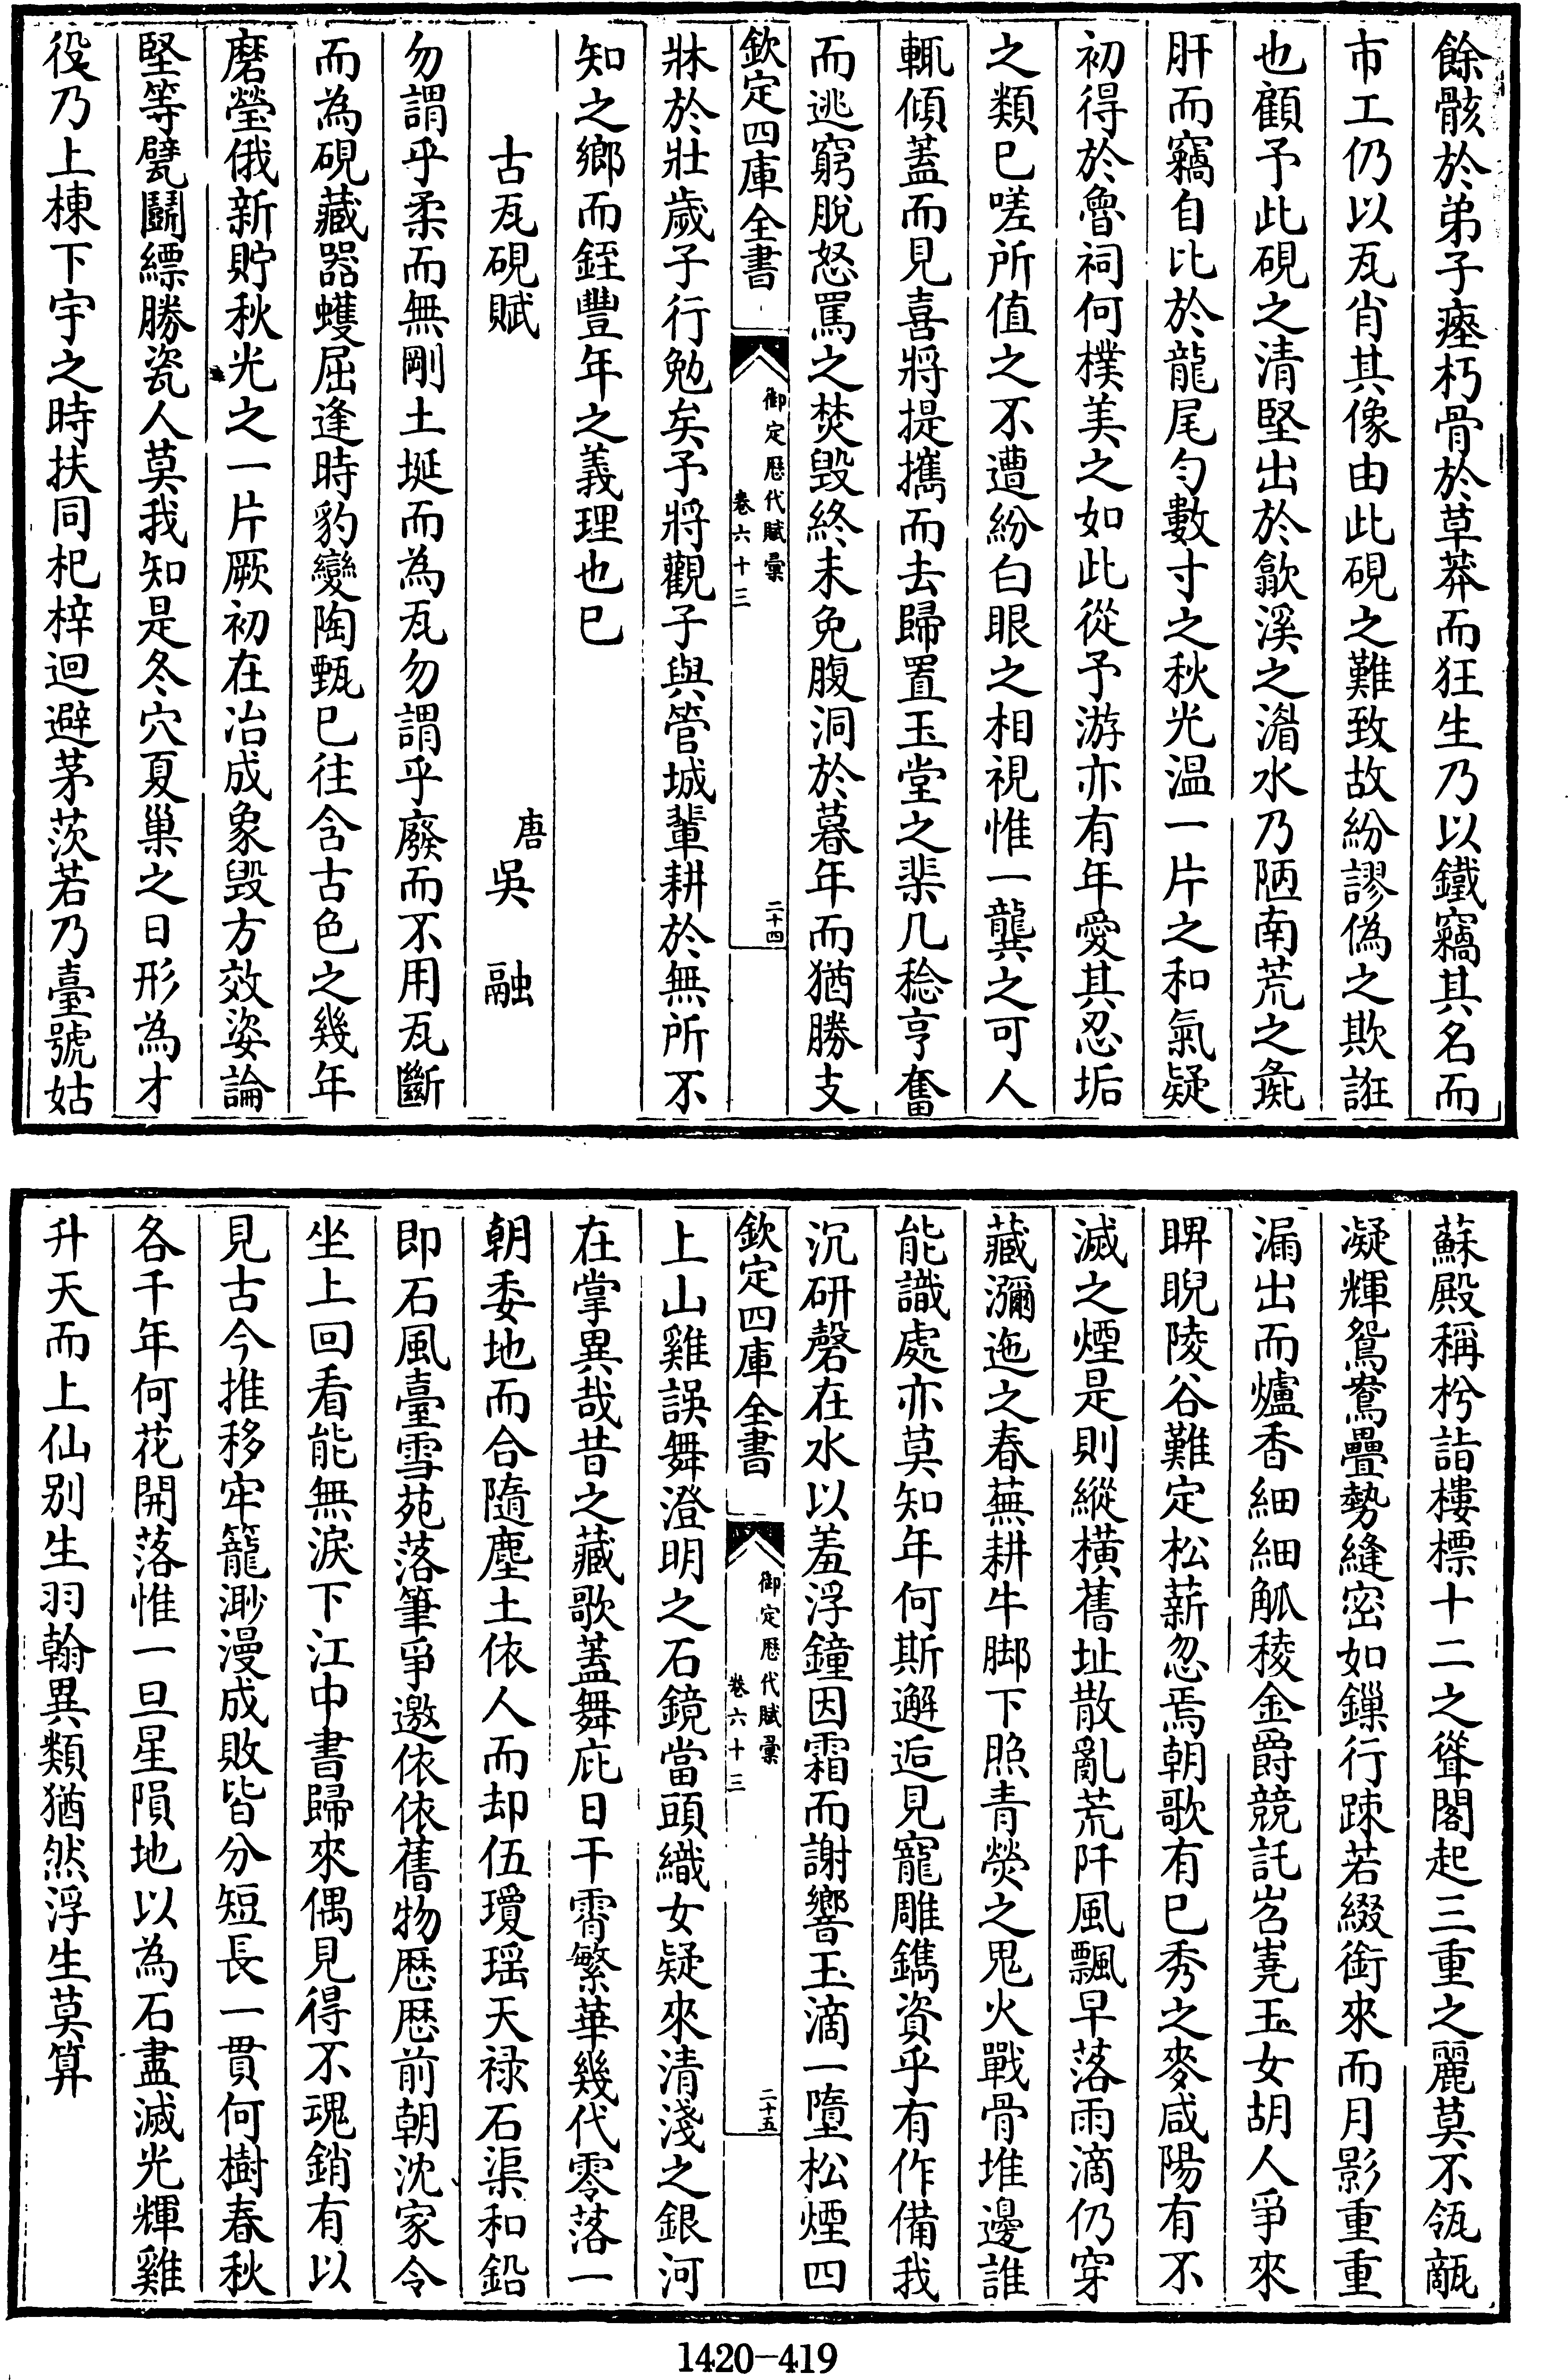 餘骸於弟子瘞朽骨於草莽而狂生乃以鐵竊其名而
市工仍以瓦肖其像由此硯之難致故紛謬偽之欺誑
也顧予此硯之清堅出於歙溪之漘水乃陋南荒之彘
肝而竊自比於龍尾勻數寸之秋光温一片之和氣疑
初得於魯祠何樸美之如此從予游亦有年愛其忍垢
之類已嗟所值之不遭紛白眼之相視惟一龔之可人
輒傾蓋而見喜將提攜而去歸置玉堂之棐几稔亨奮
而逃窮脫怒罵之焚毁終未免腹洞於暮年而猶勝支
欽定四庫全書
御定歴代賦彙
卷六十三
二十四
牀於壯歲子行勉矣予將觀子與管城輩耕於無所不
知之鄉而銍豐年之義理也已
古瓦硯賦
唐吳融
勿謂乎柔而無剛土埏而為瓦勿謂乎廢而不用瓦斷
而為硯藏器蠖屈逢時豹變陶甄已往含古色之幾年
磨瑩俄新貯秋光之一片厥初在冶成象毁方效姿論
堅等甓鬭縹勝瓷人莫我知是冬穴夏巢之日形為才
役乃上棟下宇之時扶同杞梓迴避茅茨若乃臺號姑
蘇殿稱枍詣樓標十二之聳閣起三重之麗莫不瓴甋
凝輝鴛鴦疊勢縫密如鏁行踈若綴銜來而月影重重
漏出而爐香細細觚稜金爵競託岧嶤玉女胡人爭來
睥睨陵谷難定松薪忽焉朝歌有已秀之麥咸陽有不
滅之煙是則縱橫舊址散亂荒阡風飄早落雨滴仍穿
藏瀰迤之春蕪耕牛脚下照青熒之鬼火戰骨堆邊誰
能識處亦莫知年何斯邂逅見寵雕鐫資乎有作備我
沉研磬在水以羞浮鐘因霜而謝響玉滴一墮松煙四
欽定四庫全書
御定歴代賦彙
卷六十三
二十五
上山雞誤舞澄明之石鏡當頭織女疑來清淺之銀河
在掌異哉昔之藏歌蓋舞庇日干霄繁華幾代零落一
朝委地而合隨塵土依人而却伍瓊瑶天禄石渠和鉛
即石風臺雪苑落筆爭邀依依舊物歴歴前朝沈家令
坐上回看能無淚下江中書歸來偶見得不魂銷有以
見古今推移牢籠渺漫成敗皆分短長一貫何樹春秋
各千年何花開落惟一旦星隕地以為石盡滅光輝雞
升天而上仙别生羽翰異類猶然浮生莫算
1420-419